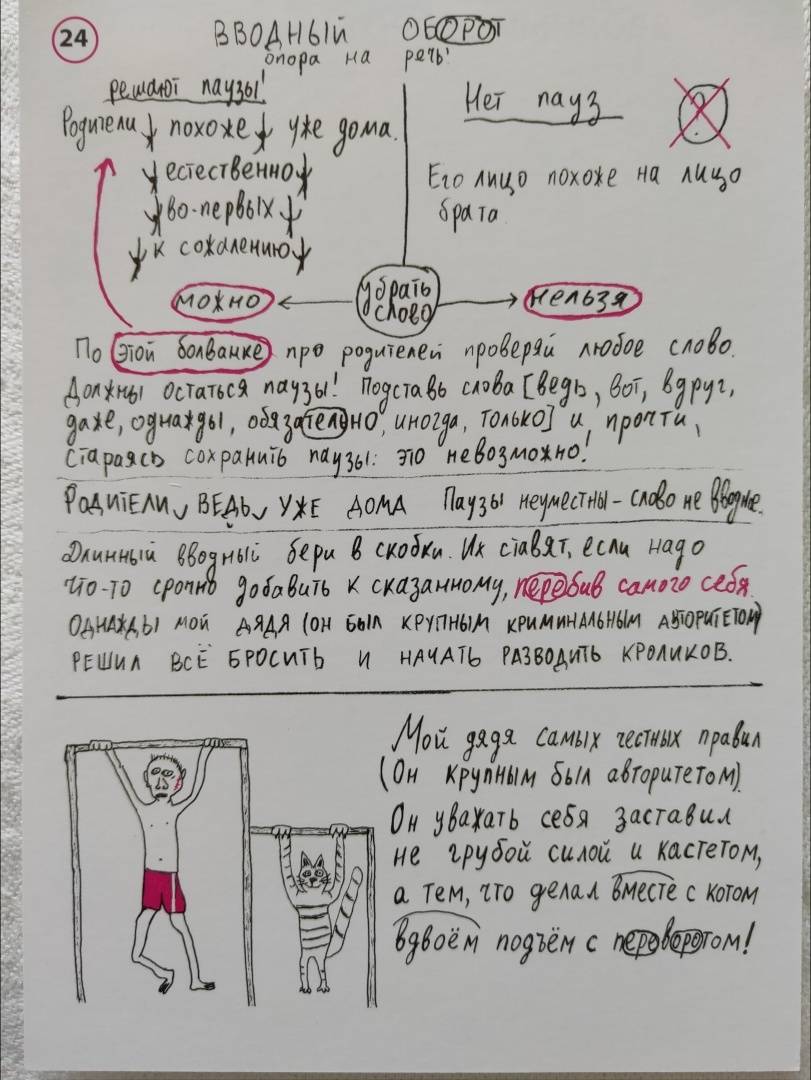 24
ВВОДНЫЙ ОБОРОТ
опора на речь!
решают паузы!
Родители, похоже, уже дома.
естественно
во-первых
к сожалению
Нет пауз
?
Его лицо похоже на лицо
брата
можно
убрать
слово
нельзя
По этой болванке про родителей проверяй любое слово.
Должны остаться паузы! Подставь слова [ведь, вот, вдруг,
даже, однажды, обязательно, иногда, только] и прочти,
стараясь сохранить паузы: это невозможно!
РОДИТЕЛИ, ВЕДЬ, УЖЕ ДОМА Паузы неуместны – слово не вводное.
Длинный вводный бери в скобки. Их ставят, если надо
что-то срочно добавить к сказанному, перебив самого себя.
ОДНАЖДЫ МОЙ ДЯДЯ (ОН БЫЛ КРУПНЫМ КРИМИНАЛЬНЫМ АВТОРИТЕТОМ)
РЕШИЛ ВСЁ БРОСИТЬ И НАЧАТЬ РАЗВОДИТЬ КРОЛИКОВ.
Мой дядя самых честных правил
(Он крупным был авторитетом).
Он уважать себя заставил
не грубой силой и кастетом,
а тем, что делал вместе с котом
вдвоём подъём с переворотом!